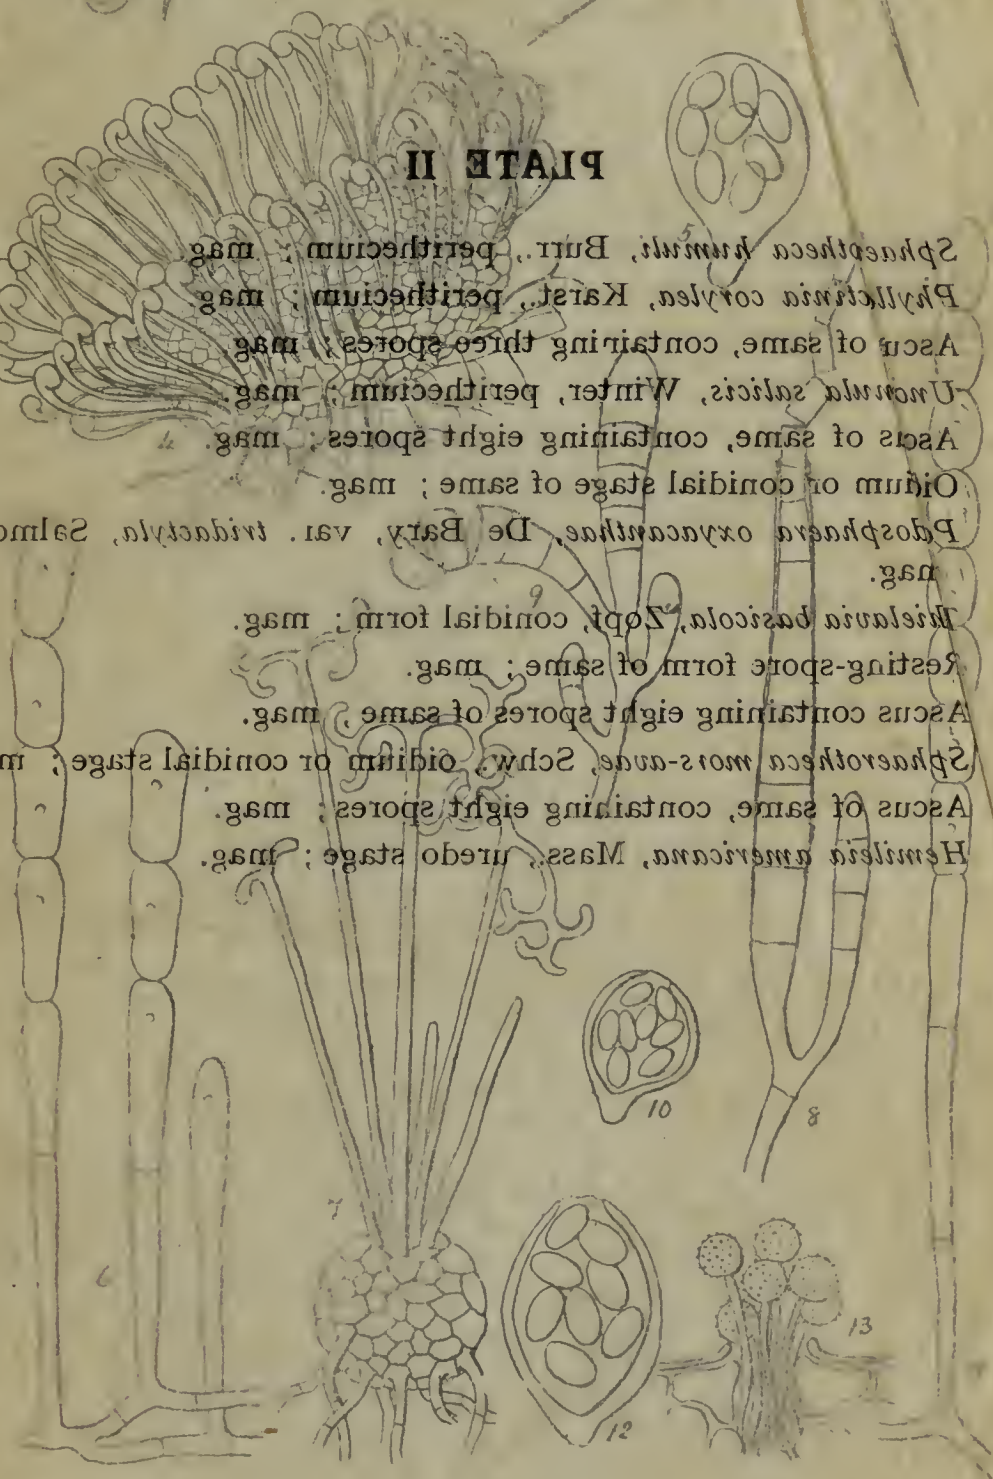 PLATE II
Sphaeotheca humuli, Burr., perithecium ; mag
Phyllctinia corylea, Karst., perithecium ; mag
Ascu of same, containing three spores ; mag.
Uncinula salicis, Winter, perithecium ; mag.
Ascus of same, containing eight spores ; mag.
Oidium or conidial stage of same ; mag.
Pdosphaera oxyacanthae, De Bary, var. tridactyla, Salmo
mag.
basicola, Zopf, conidial form ; mag.
Resting-spore form of same ; mag.
Ascus containing eight spores of same ; mag.
Sphaerotheca mors-uvae, Schw., oidium or conidial stage ; m
Ascus of same, containing eight spores ; mag.
Hemileia americana, Mass., uredo stage ; mag.
4
9
6
7
10
8
12
13